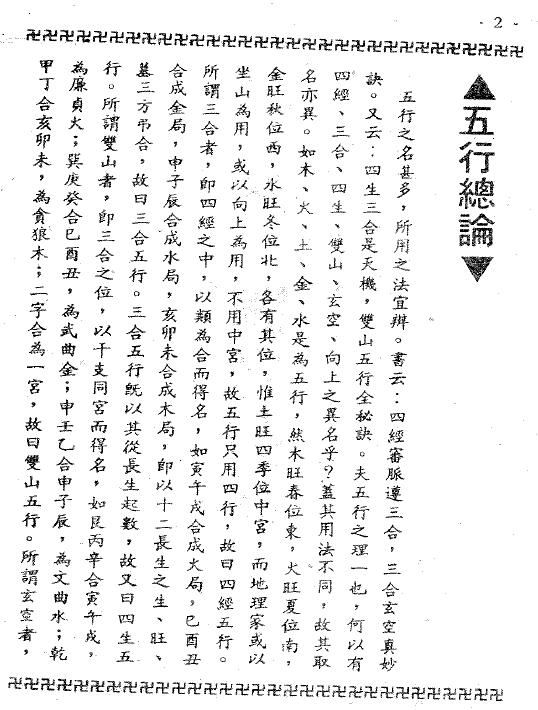 - 2 -
▲五行總論▼
五行之名甚多，所用之法宜辨。書云：四經審脈遵三合，三合玄空真妙
訣。又云：四生三合是天機，雙山五行全秘訣。夫五行之理一也，何以有
四經、三合、四生、雙山、玄空、向上之異名乎？蓋其用法不同，故其取
名亦異。如木、火、土、金、水是為五行，然木旺春位東，火旺夏位南，
金旺秋位西，水旺冬位北，各有其位，惟土旺四季位中宮，而地理家或以
坐山為用，或以向上為用，不用中宮，故五行只用四行，故曰四經五行。
所謂三合者，即四經之中，以類為合而得名，如寅午戌合成火局，巳酉丑
合成金局，申子辰合成水局，亥卯未合成木局，即以十二長生之生、旺、
墓三方吊合，故曰三合五行。三合五行既以其從長生起數，故又曰四生五
行。所謂雙山者，即三合之位，以干支同宮而得名，如艮丙辛合寅午戌，
為廉貞火；巽庚癸合巳酉丑，為武曲金；申壬乙合申子辰，為文曲水；乾
甲丁合亥卯未，為貪狼木；二字合為一宮，故曰雙山五行。所謂玄空者，